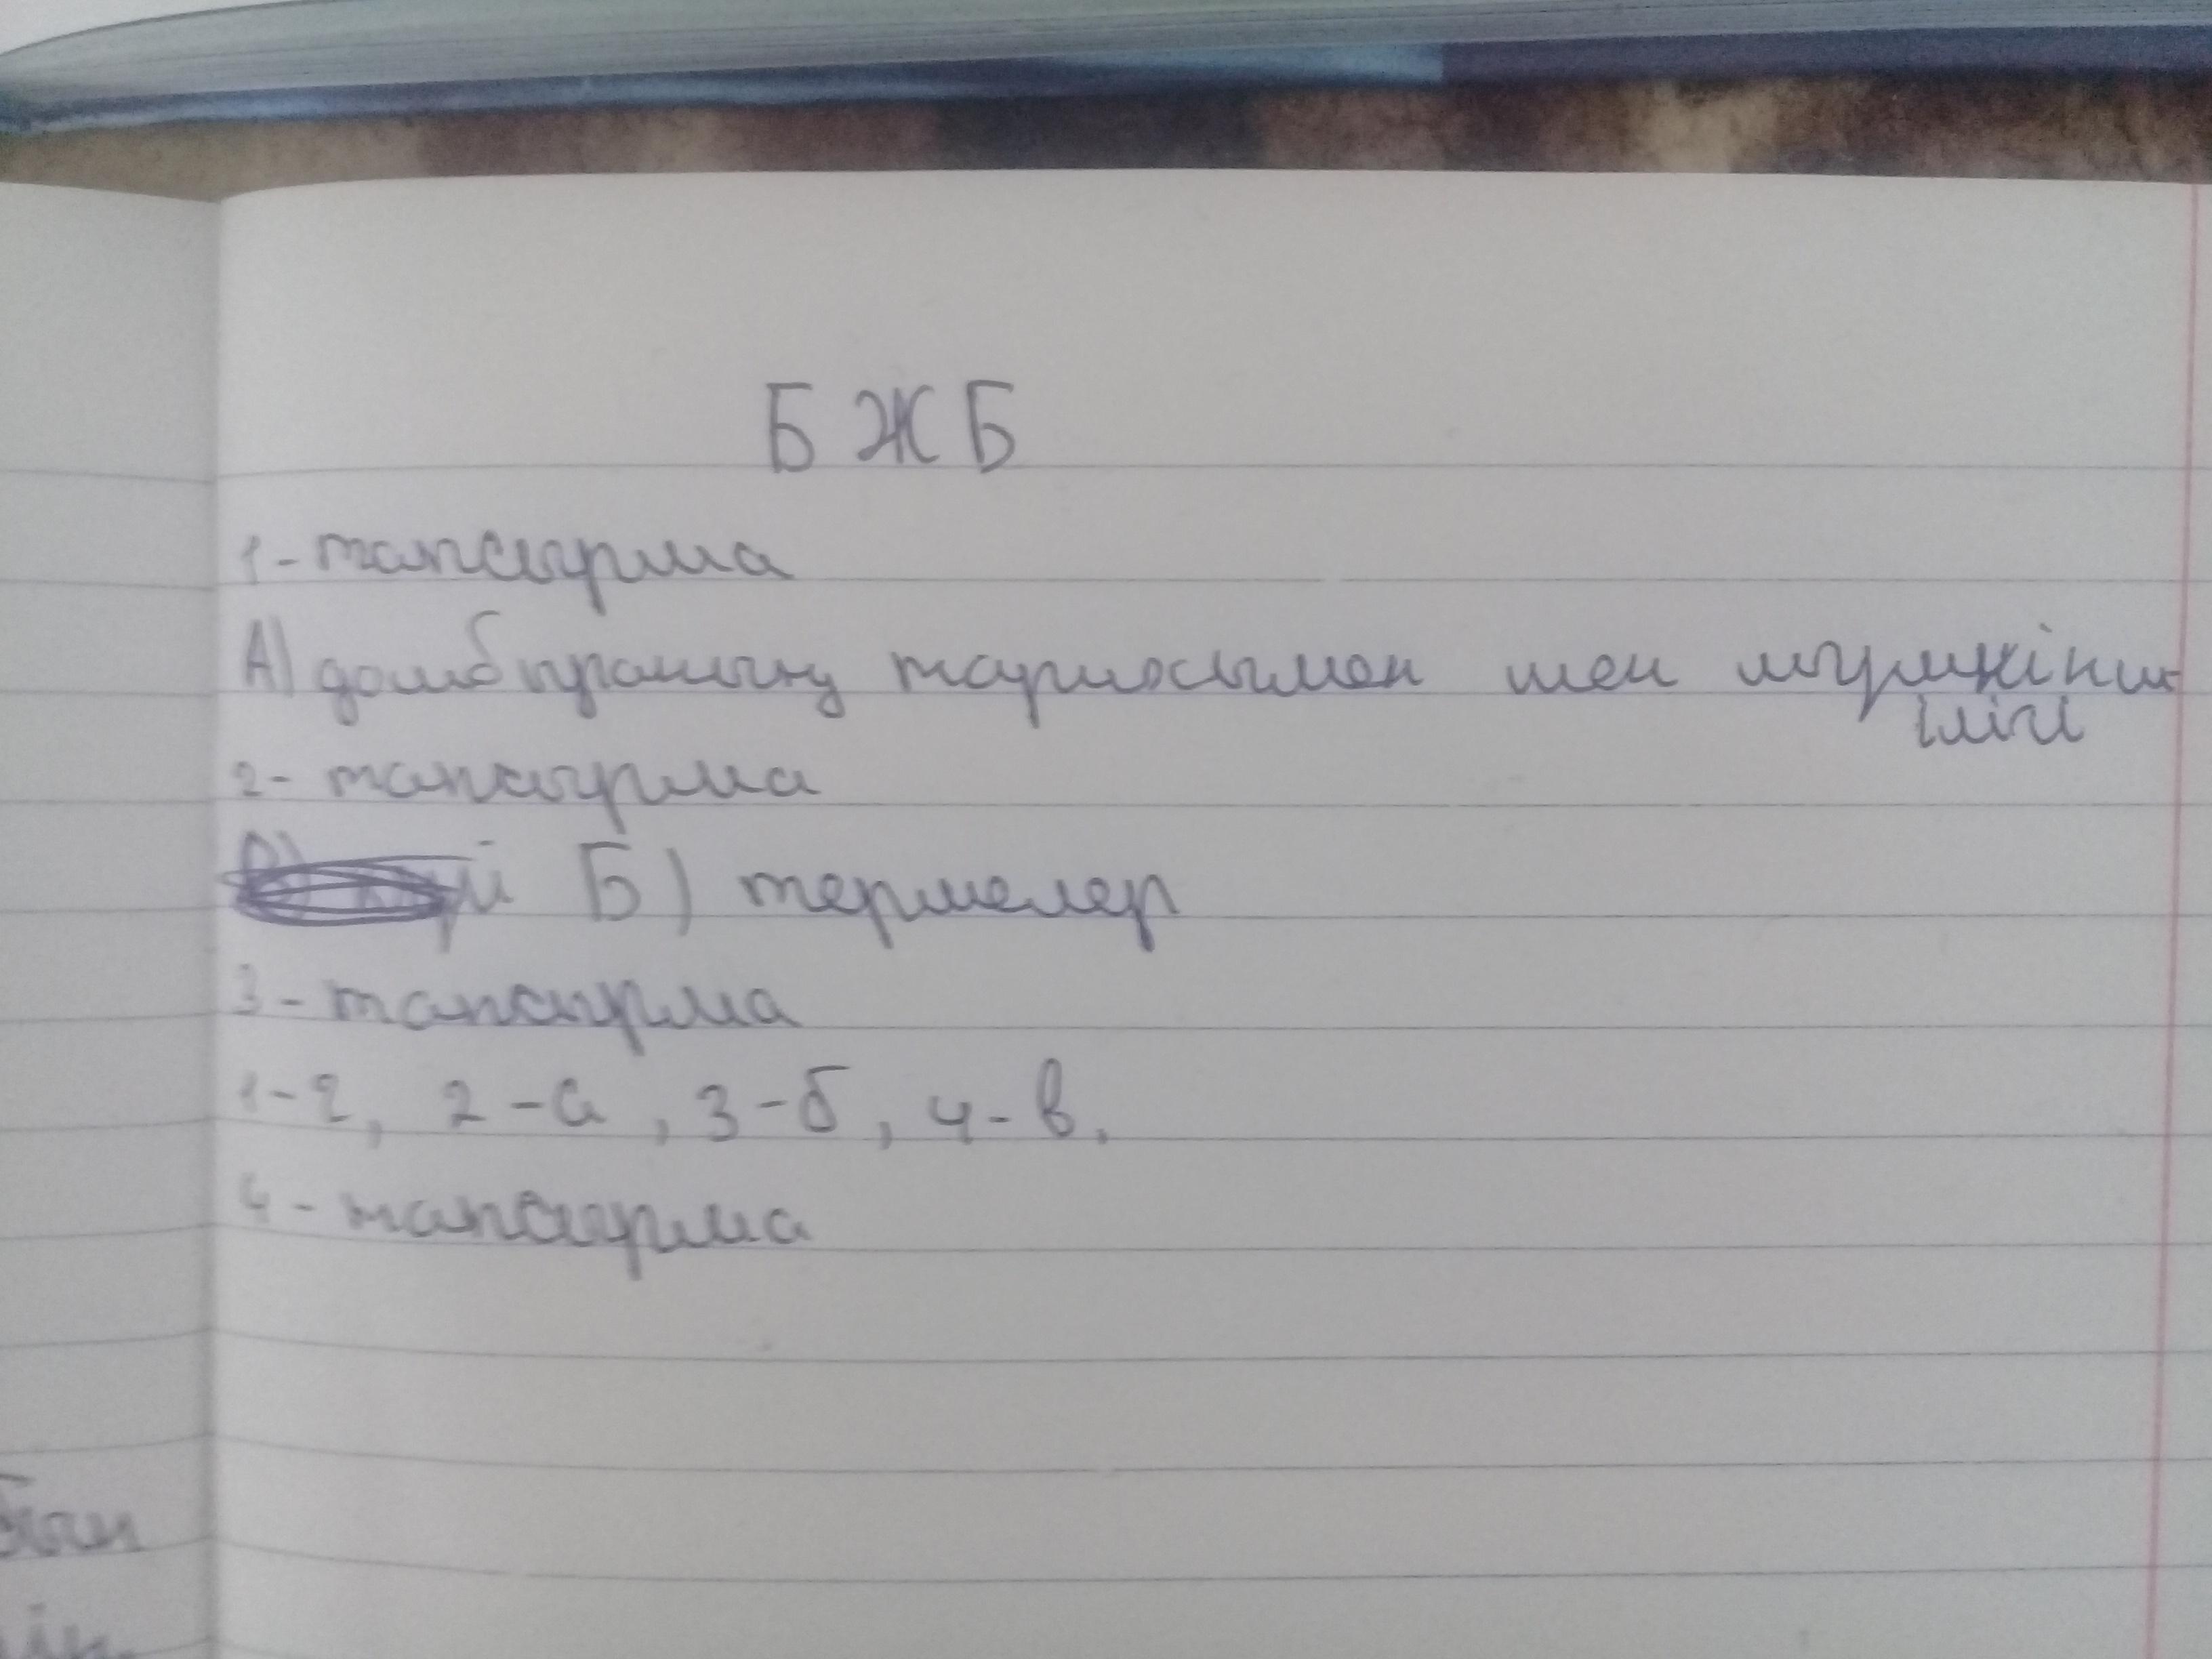 БЖБ
1-тапсырма
А) домбыраның тармосымен мен мүмкінш-
ілігі
2-тапсырма
й Б) термелер
3-тапсырма
1-г, 2-а, 3-б, 4-в.
4-тапсырма